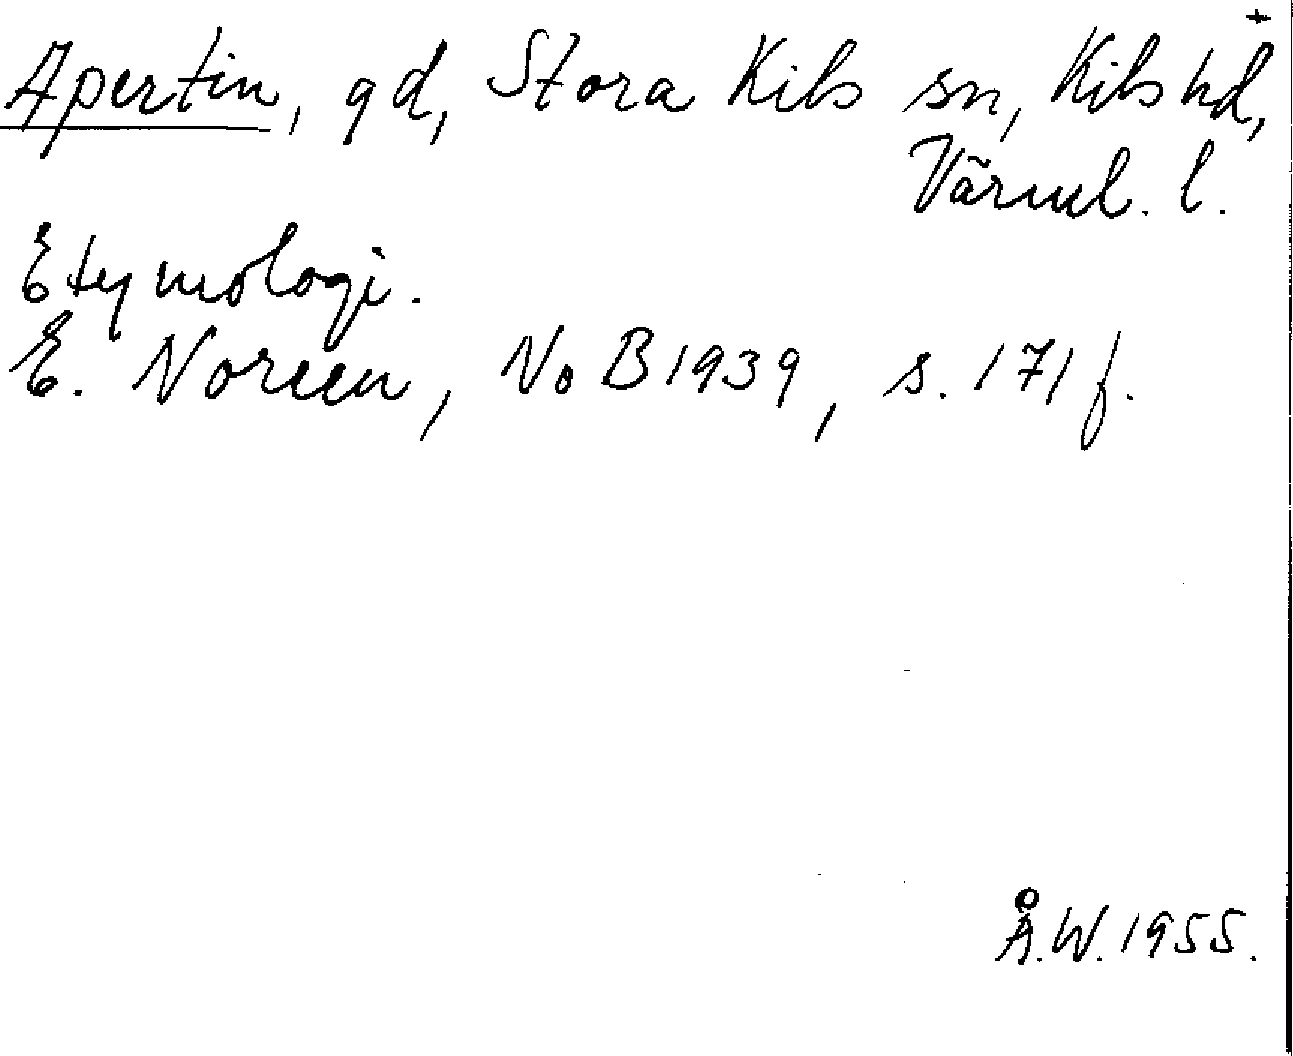 +
Apertin, gd, Stora Kils sn, Kils hd,
Värml. l.
Etymologi.
E. Noreen, NoB 1939, s. 171 f.
Å.W. 1955.